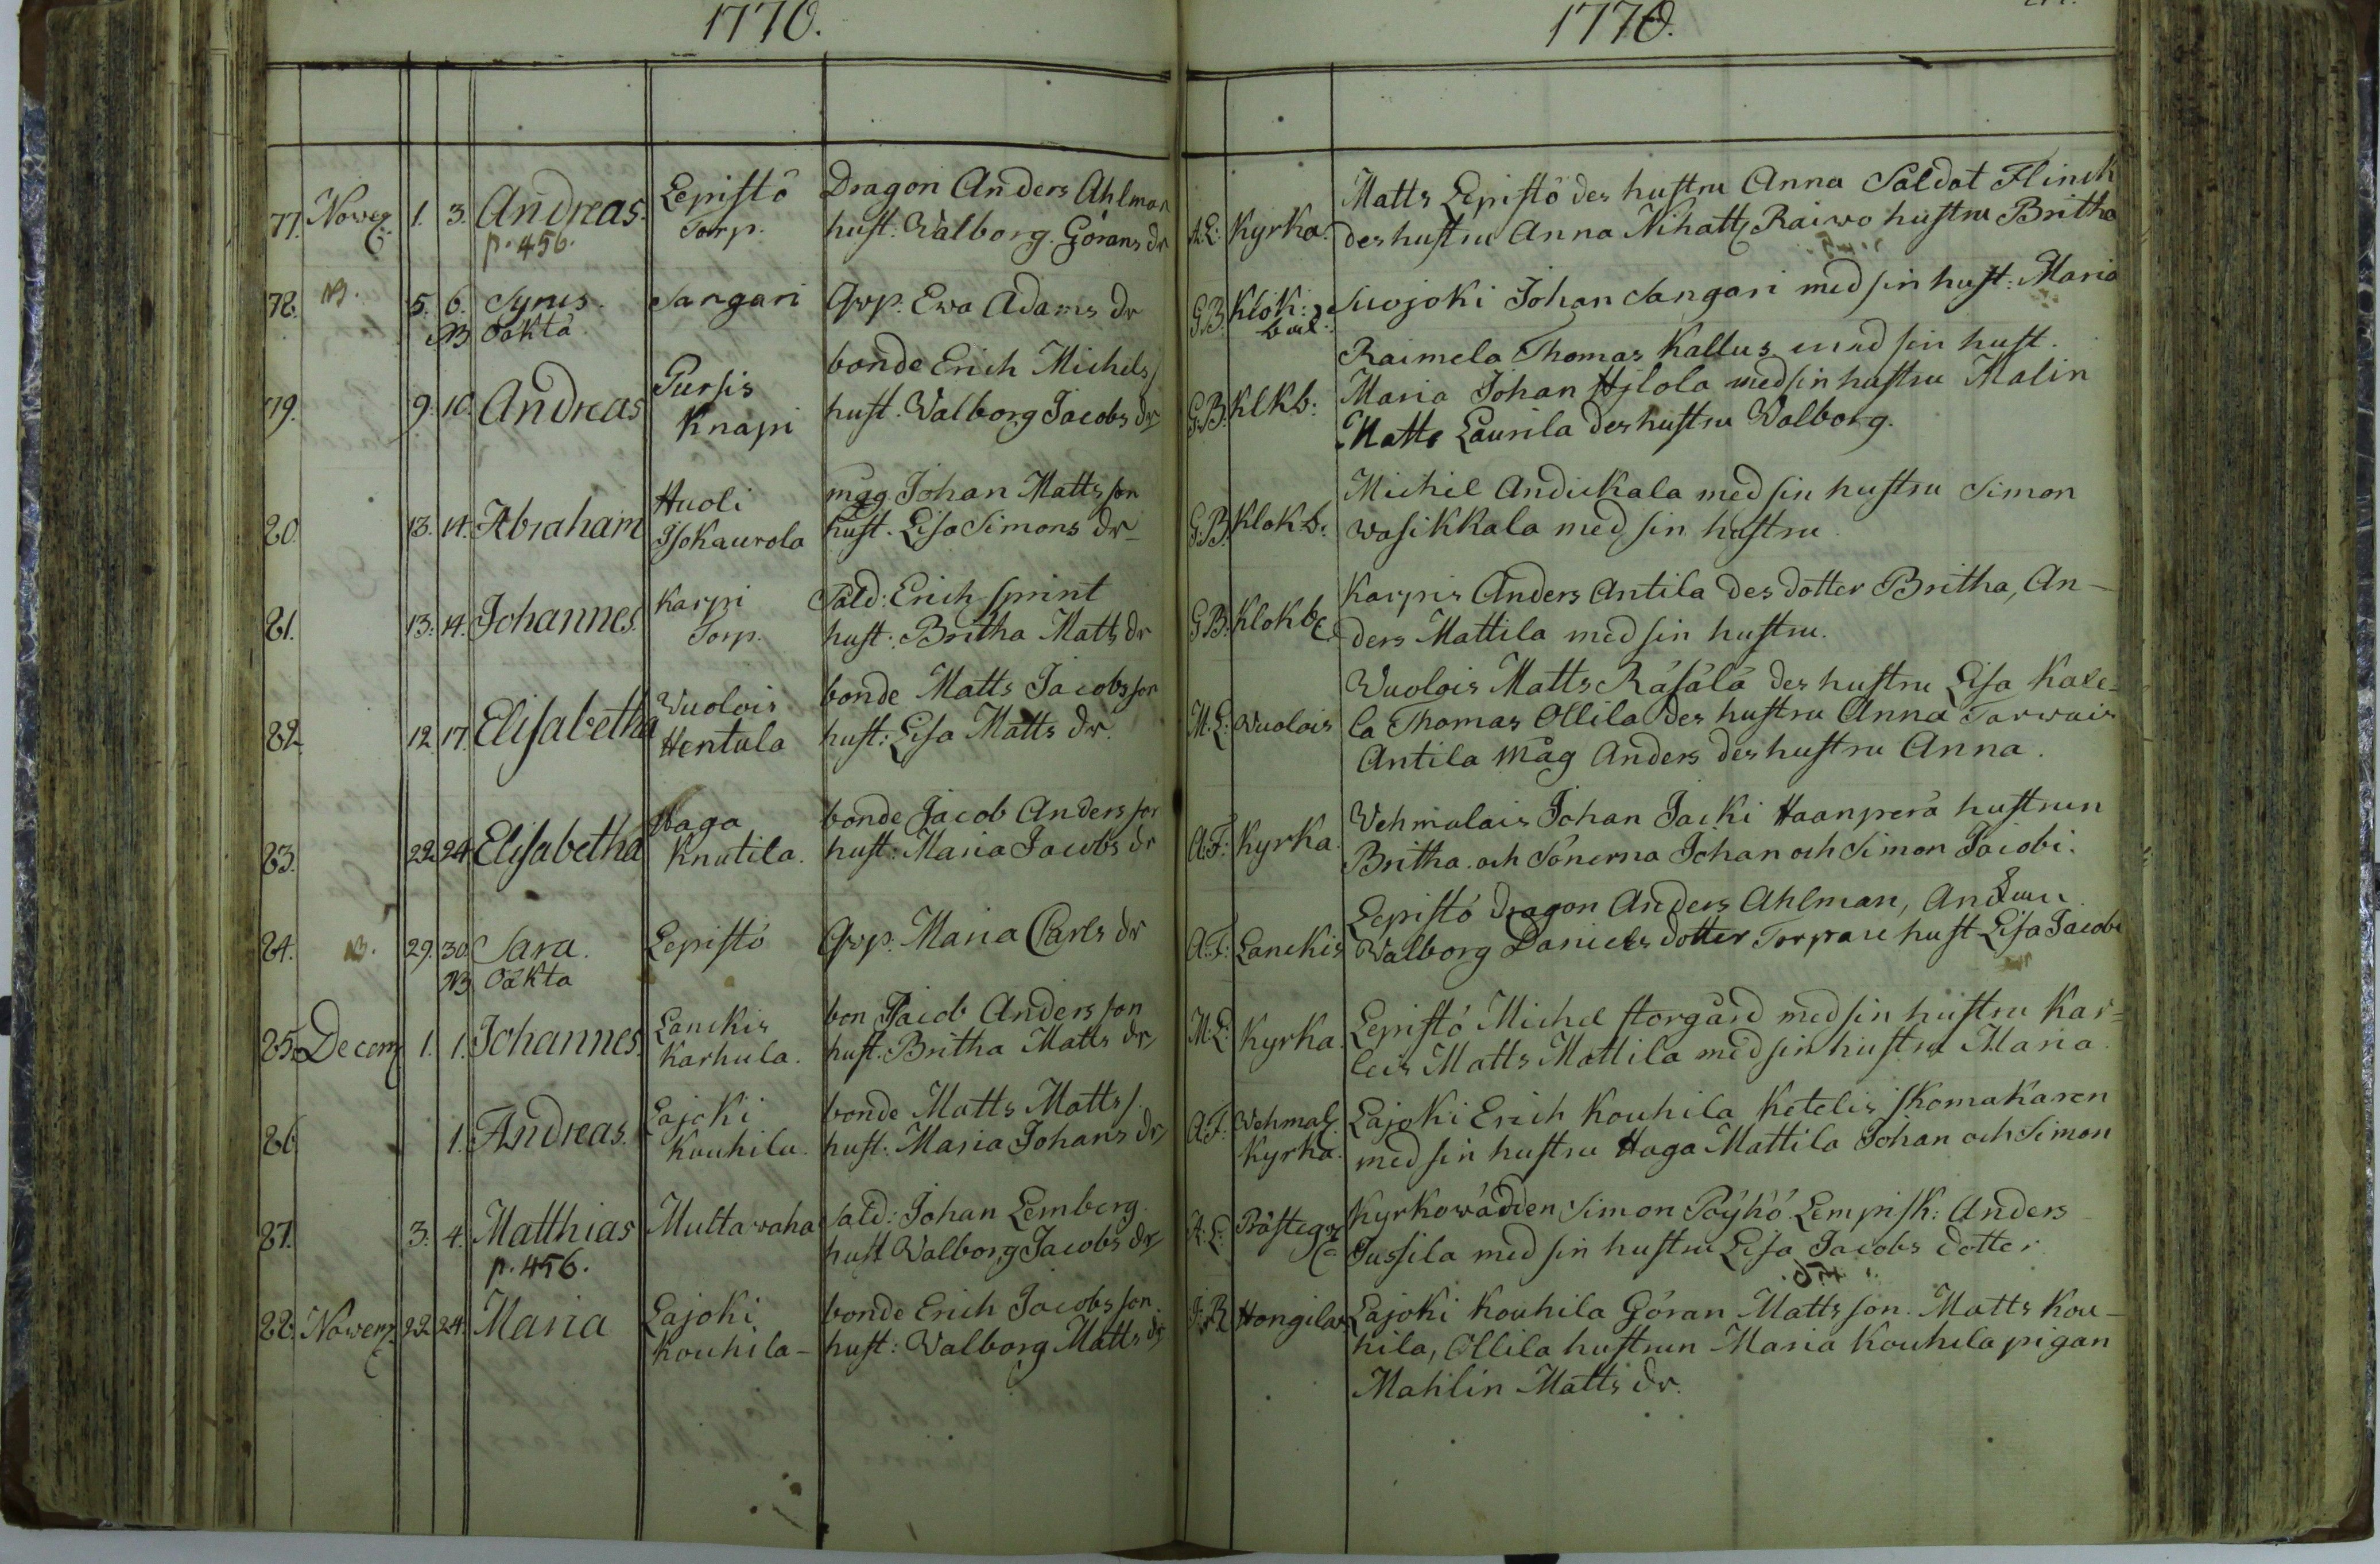 1770.
1770.
77. Novem 1. 3. Andreas. p. 456. Lepistö Torp. Dragon Anders Ahlman
hust. Walborg Görans dr
A:L: Kyrka. Matts Lepistö des hustru Anna Saldat Flinck
des hustru Anna Nihatt Raiwo hustru Britha
78. NB. 5. 6. Synes. NB Oäkta. Sangari Qvp. Ewa Adams dr
G:B: Klok: bol: Suojoki Johan Sangari med sin hust: Maria
79. 9. 10. Andreas Pursis Knapi bonde Erich Michels
hust. Walborg Jacobs dr
G:B: Klkb: Raimela Thomas Kallus med sin hust.
Maria Johan Hylola med sin hustru Malin
Matts Laurila des hustru Walborg.
80. 13. 14. Abraham Huoli Isokaurola måg. Johan Matts son
hust. Lisa Simons dr
G:B: Klokb: Michel Andickala med sin hustru Simon
wasikkala med sin hustru
81. 13. 14. Johannes. Karpi Torp. Sald: Erich Sprint
hust: Britha Matts dr
G:B: Klokb: Karpis Anders Antila des dotter Britha, An-
ders Mattila med sin hustru.
82. 12. 17. Elisabetha Wuolois Hentula bonde Matts Jacobs son
hust: Lisa Matts dr.
M:L: Wuolais Wuolois Matts Räsälä des hustru Lisa Kale-
la Thomas Ollila des hustru Anna Tarwais
Antila måg Anders des hustru Anna.
83. 22. 24. Elisabetha Haga Knutila. bonde Jacob Anders son
hust: Maria Jacobs dr
A:F: Kyrka. Wehmalais Johan Jacki Haanperä hustrun
Britha och Sönerna Johan och Simon Jacobi.
84. NB. 29. 30. Sara. NB Oäkta Lepistö Qvp. Maria Carls dr
A:F: Lanckis Lepistö dragon Anders Ahlman,
Walborg Daniels dotter Torpare hust Lisa Jacobs
85. Decem 1. 1. Johannes. Lanckis Karhula. bon Jacob Anders son
hust. Britha Matts dr
M:L: Kyrka. Lepistö Michel storgård med sin hustru Kar-
leis Matts Mattila med sin hustru Maria.
86. 1. Andreas. Lajoki Kouhila. bonde Matts Matts s.
hust: Maria Johans dr
A:F: Wehmal. Kyrka. Lajoki Erich Kouhila Ketelis skomakaren
med sin hustru Haga Mattila Johan och Simon
87. 3. 4. Matthias p. 456. Multawaha Sald: Johan Lemberg.
hust Walborg Jacobs dr
A:L: Prästeg: Kyrkowäddien Simon Pöyhö Lempisk: Anders
Jussila med sin hustru Lisa Jacobs dotter
88. Novem 22. 24. Maria Lajoki Kouhila bonde Erich Jacobs son.
hust: Walborg Matts dr
Hongila Lajoki Kouhila Göran Matts son. Matts Kou-
hila, Ollila hustrun Maria Kouhila pigan
Mahlin Matts dr.